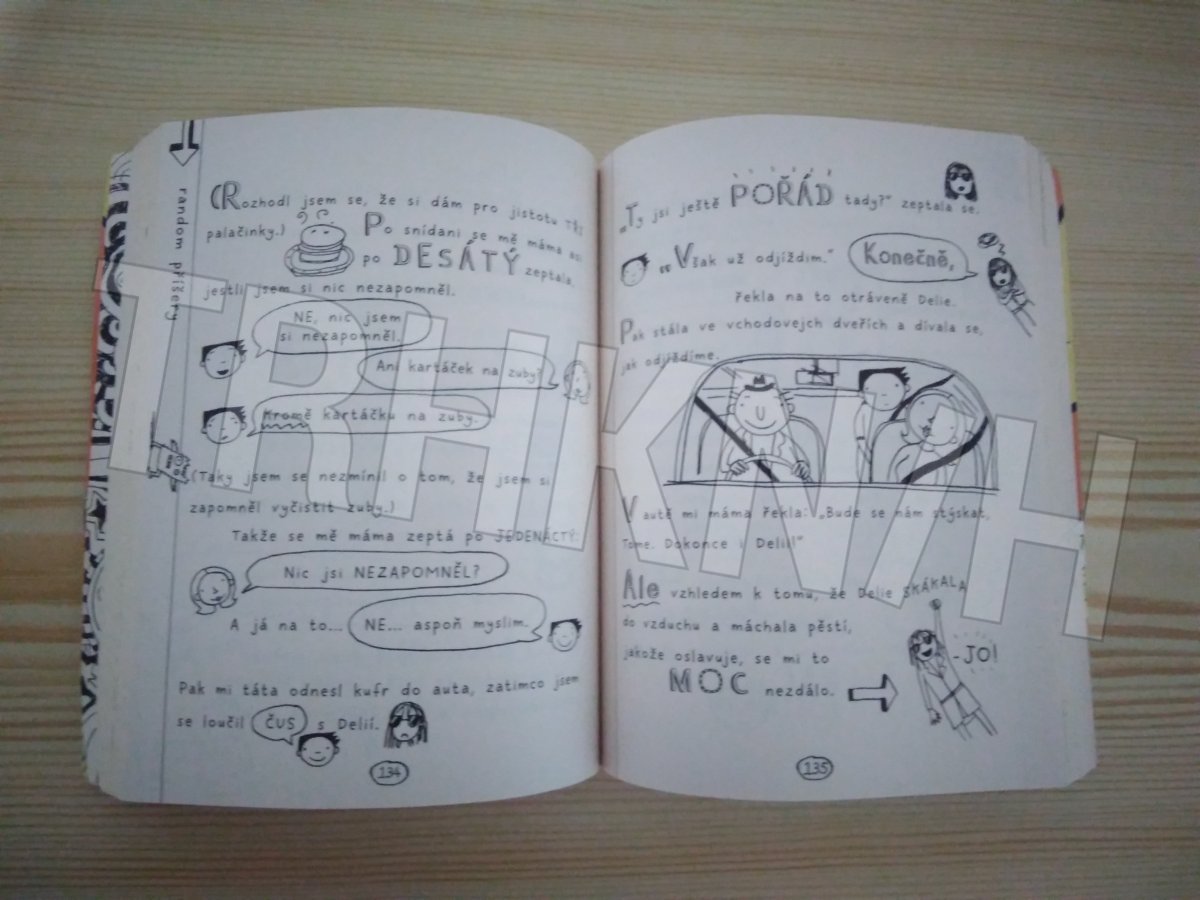 random příšery
(Rozhodl jsem se, že si dám pro jistotu TŘI
palačinky.)
Po snídani se mě máma asi
po DESÁTÝ zeptala,
jestli jsem si nic nezapomněl.
NE, nic jsem
si nezapomněl.
Ani kartáček na zuby?
Kromě kartáčku na zuby.
(Taky jsem se nezmínil o tom, že jsem si
zapomněl vyčistit zuby.)
Takže se mě máma zeptá po JEDENÁCTÝ:
Nic jsi NEZAPOMNĚL?
A já na to... NE... aspoň myslim.
Pak mi táta odnesl kufr do auta, zatímco jsem
se loučil ČUS s Delií.
134
„Ty jsi ještě POŘÁD tady?" zeptala se.
„Však už odjíždim." Konečně,
řekla na to otráveně Delie.
Pak stála ve vchodovejch dveřích a dívala se,
jak odjíždíme.
V autě mi máma řekla: „Bude se nám stýskat,
Tome. Dokonce i Delii!"
Ale vzhledem k tomu, že Delie SKÁKALA
do vzduchu a máchala pěstí,
jakože oslavuje, se mi to
MOC nezdálo.
-JO!
135
TRHKNIH